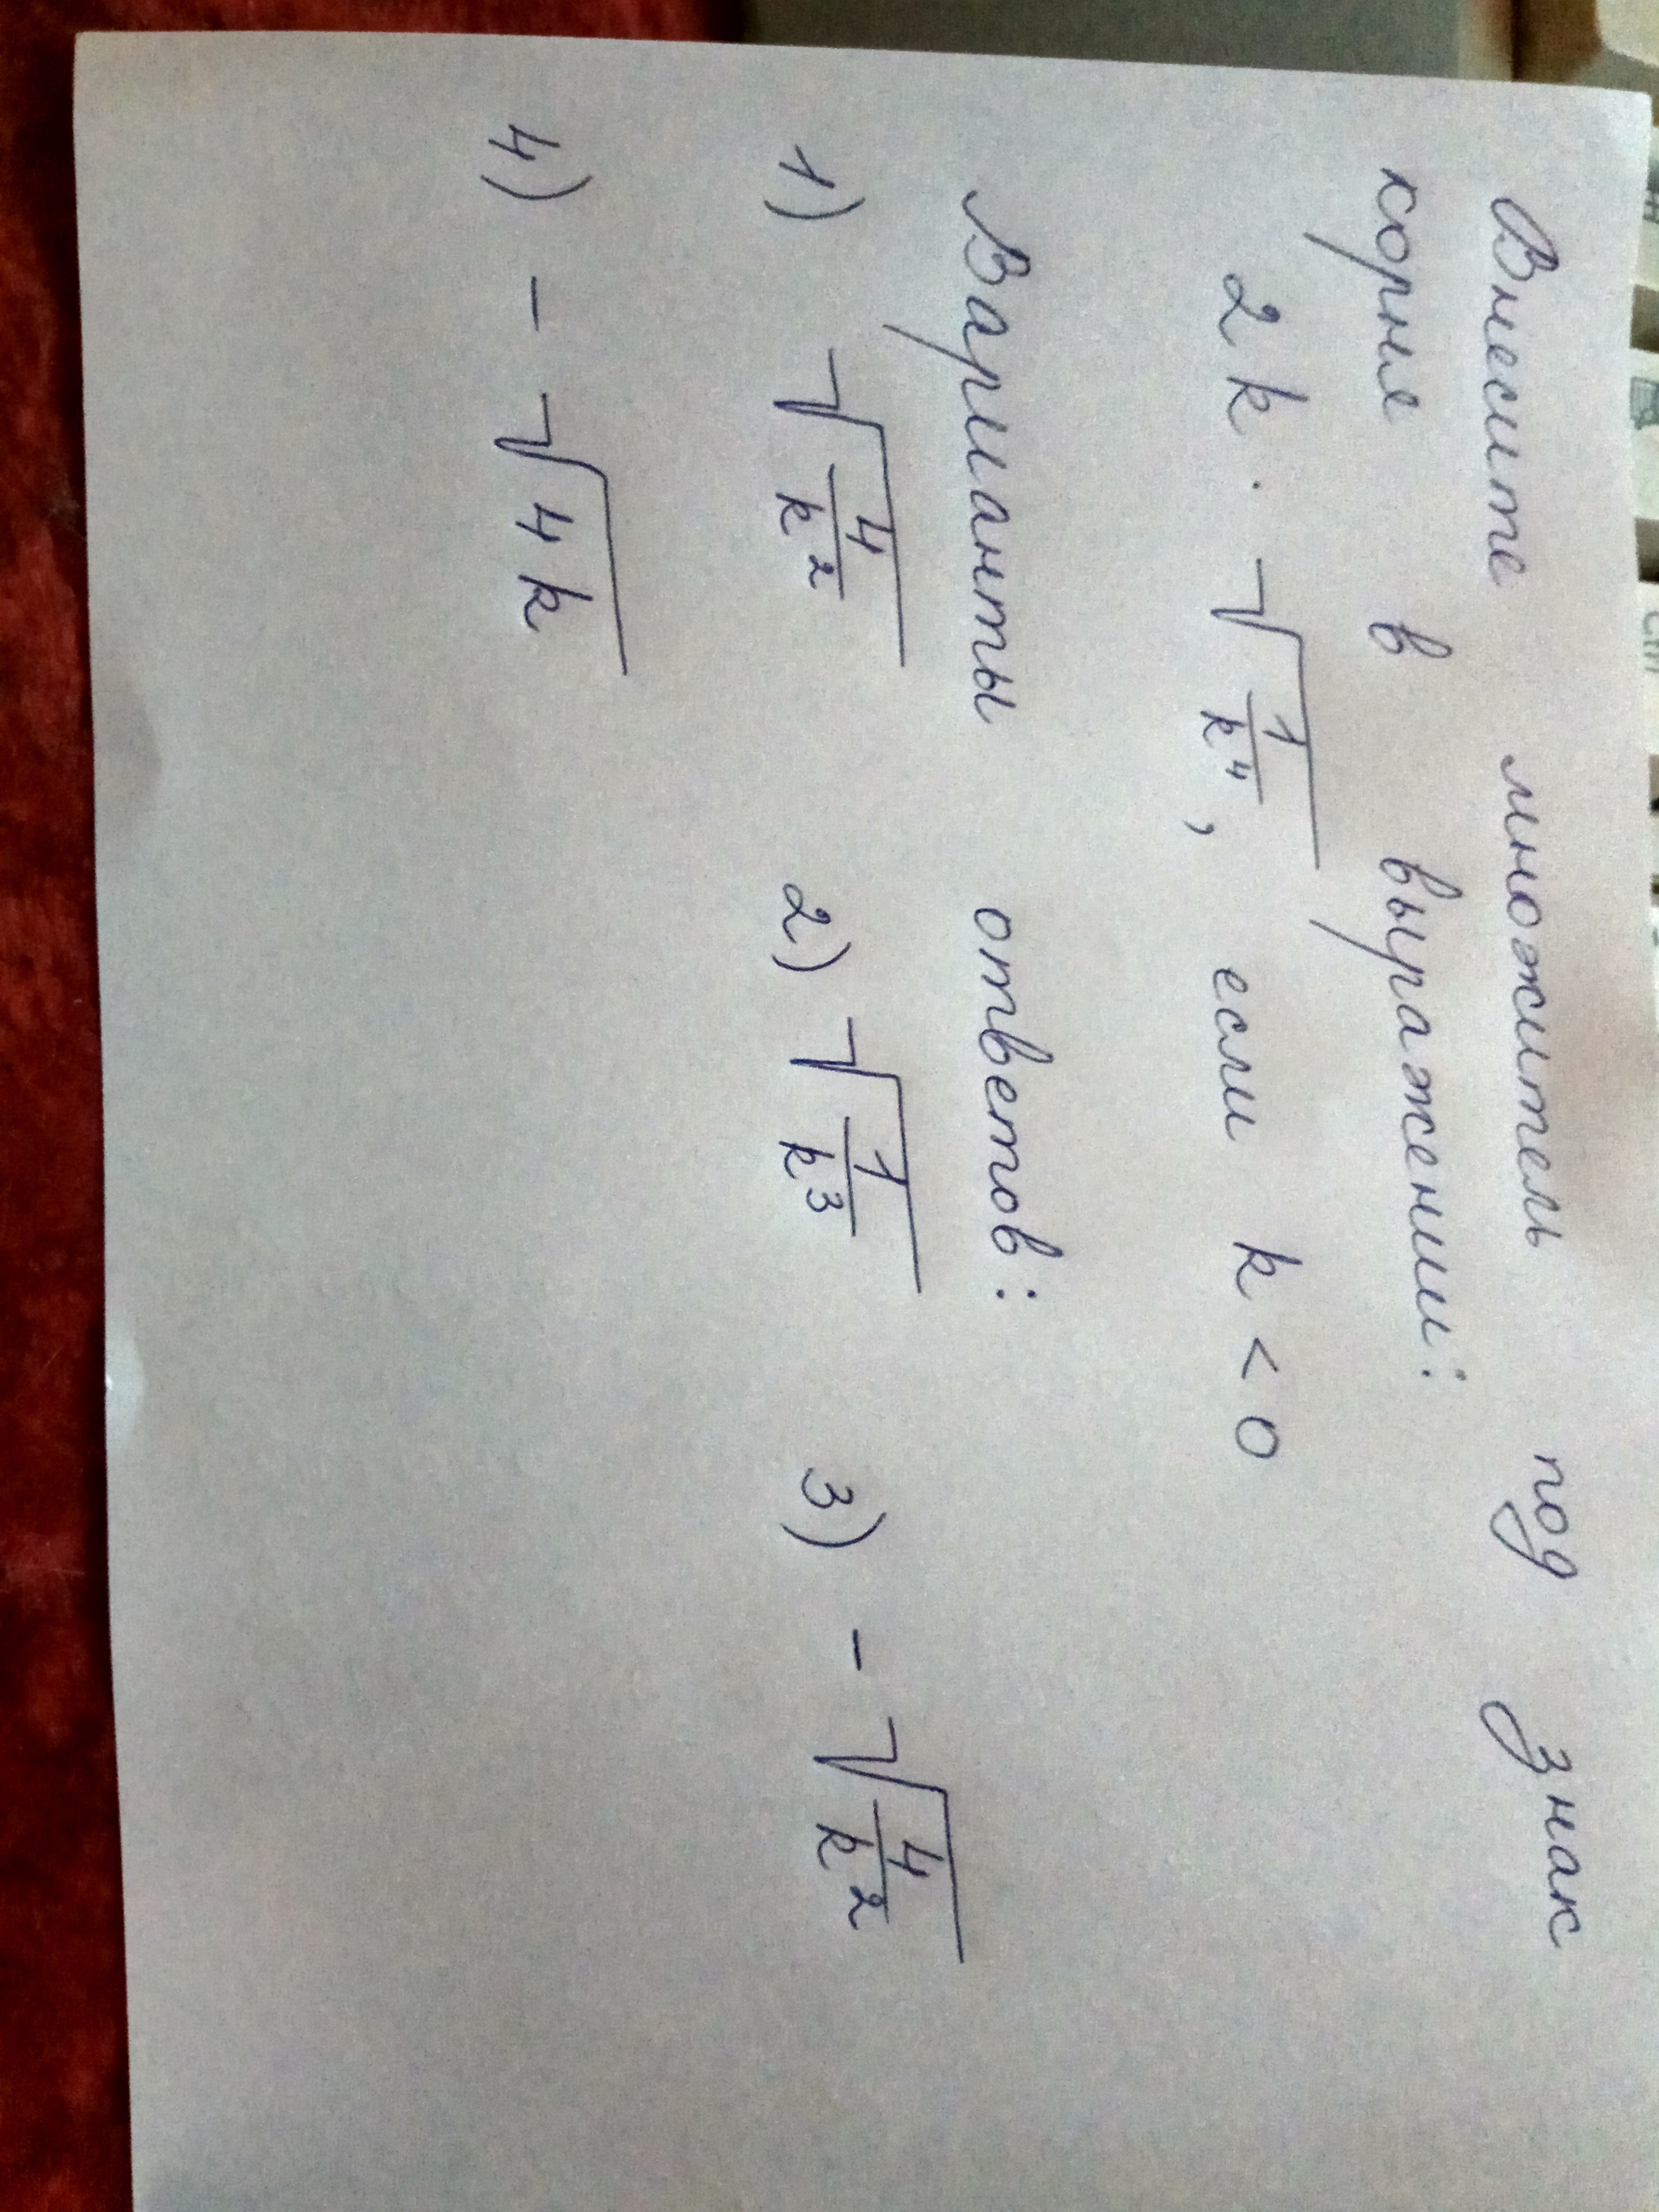 Внесите множитель под знак
корня в выражении:
2k · √(1/k⁴), если k < 0
Варианты ответов:
1) √(4/k²) 2) √(1/k³) 3) -√(4/k²)
4) -√(4k)